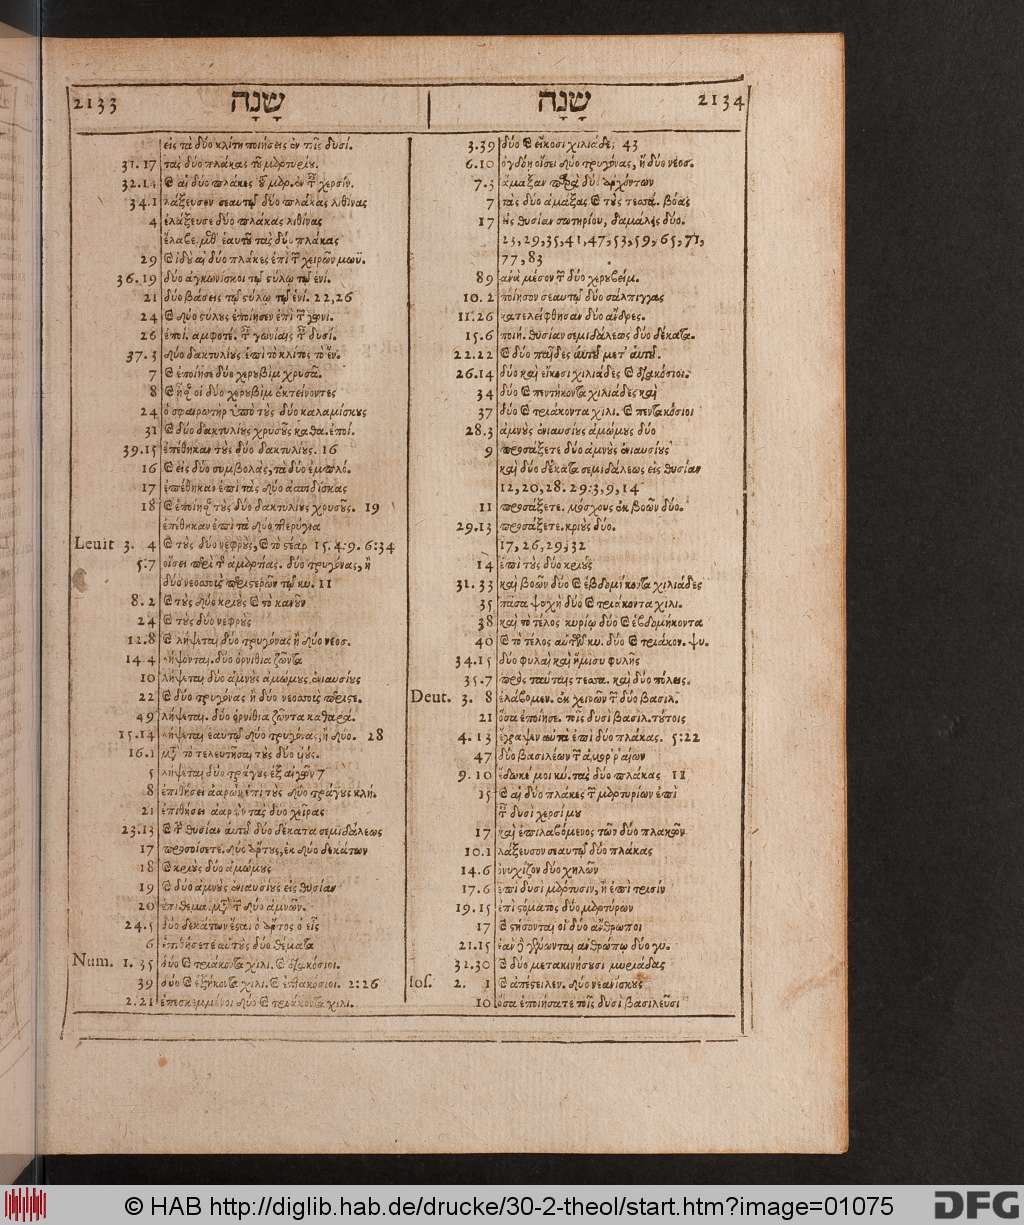 2133 שָׁנָה
שָׁנָה 2134
εἰς τὰ δύο κλίτη ποιήσεις ἐν τοῖς δυσί.
31.17 τὰς δύο πλάκας τοῦ μαρτυρίου.
32.14 καὶ αἱ δύο πλάκες τοῦ μαρ. ἐν ταῖς χερσίν.
34.1 λάξευσον σεαυτῷ δύο πλάκας λιθίνας
4 ἐλάξευσε δύο πλάκας λιθίνας
ἔλαβε μεθ' ἑαυτοῦ τὰς δύο πλάκας
29 καὶ ἰδοὺ αἱ δύο πλάκες ἐπὶ τῶν χειρῶν μωϋ.
36.19 δύο ἀγκωνίσκοι τῷ στύλῳ τῷ ἑνί.
21 δύο βάσεις τῷ στύλῳ τῷ ἑνί. 22,26
24 καὶ δύο στύλους ἐποίησεν ἐπὶ τῶν γωνι.
26 ἐποί. ἀμφοτέ. ταῖς γωνίαις ταῖς δυσί.
37.3 δύο δακτυλίους ἐπὶ τὸ κλίτος τὸ ἕν.
7 καὶ ἐποίησε δύο χερουβὶμ χρυσᾶ.
8 καὶ ἦσαν οἱ δύο χερουβὶμ ἐκτείνοντες
24 ὁ σφαιρωτὴρ ὑπὸ τοὺς δύο καλαμίσκους
31 καὶ δύο δακτυλίους χρυσοῦς καθα. ἐποί.
39.15 ἐπέθηκαν τοὺς δύο δακτυλίους. 16
16 καὶ εἰς δύο συμβολὰς, τὰ δύο ἐμπλό.
17 ἐπέθηκαν ἐπὶ τὰς δύο ἀσπιδίσκας
18 καὶ ἐποίησαν τοὺς δύο δακτυλίους χρυσοῦς. 19
ἐπέθηκαν ἐπὶ τὰ δύο πτερύγια
Leuit 3. 4 καὶ τοὺς δύο νεφροὺς, καὶ τὸ στέαρ 15. 4:9. 6:34
5:7 οἴσει περὶ τῆς ἁμαρτίας. δύο τρυγόνας, ἢ
δύο νεοσσοὺς περιστερῶν τῷ κυ. 11
8.2 καὶ τοὺς δύο κριοὺς καὶ τὸ κανοῦν
24 καὶ τοὺς δύο νεφροὺς
12.8 καὶ λήψεται δύο τρυγόνας ἢ δύο νεοσ.
14.4 λήψονται. δύο ὀρνίθια ζῶντα
10 λήψεται δύο ἀμνοὺς ἀμώμους ἐνιαυσίους
22 καὶ δύο τρυγόνας ἢ δύο νεοσσοὺς περιστε.
49 λήψεται. δύο ὀρνίθια ζῶντα καθαρά.
15.14 λήψεται ἑαυτῷ δύο τρυγόνας, ἢ δύο. 28
16.1 μετὰ τὸ τελευτῆσαι τοὺς δύο υἱούς.
5 λήψεται δύο τράγους ἐξ αἰγῶν 7
8 ἐπιθήσει ἀαρὼν ἐπὶ τοὺς δύο τράγους κλή.
21 ἐπιθήσει ἀαρὼν τὰς δύο χεῖρας
23.13 καὶ τὴν θυσίαν αὐτοῦ δύο δέκατα σεμιδάλεως
17 προσοίσετε. δύο ἄρτους, ἐκ δύο δεκάτων
18 καὶ κριοὺς δύο ἀμώμους
19 καὶ δύο ἀμνοὺς ἐνιαυσίους εἰς θυσίαν
20 ἐπίθεμα. μετὰ τῶν δύο ἀμνῶν.
24.5 δύο δεκάτων ἔσται ὁ ἄρτος ὁ εἷς
6 ἐπιθήσετε αὐτοὺς δύο θέματα
Num. 1. 35 δύο καὶ τριάκοντα χιλι. καὶ διακόσιοι.
39 δύο καὶ ἑξήκοντα χιλι. καὶ ἑπτακόσιοι. 2:26
2.21 ἐπεσκεμμένοι δύο καὶ τριάκοντα χιλι.
3.39 δύο καὶ εἴκοσι χιλιάδες 43
6.10 ὀγδόη οἴσει δύο τρυγόνας, ἢ δύο νεοσ.
7.3 ἅμαξαν παρὰ δύο ἀρχόντων
7 τὰς δύο ἁμάξας καὶ τοὺς τεσσά. βόας
17 εἰς θυσίαν σωτηρίου, δαμάλεις δύο.
23,29,35,41,47,53,59,65,71,
77,83
89 ἀνὰ μέσον τῶν δύο χερουβείμ.
10.2 ποίησον σεαυτῷ δύο σάλπιγγας
11.26 κατελείφθησαν δύο ἄνδρες.
15.6 ποιή. θυσίαν σεμιδάλεως δύο δέκατα.
22.22 καὶ δύο παῖδες αὐτοῦ μετ' αὐτοῦ.
26.14 δύο καὶ εἴκοσι χιλιάδες καὶ διακόσιοι.
34 δύο καὶ πεντήκοντα χιλιάδες καὶ
37 δύο καὶ τριάκοντα χιλι. καὶ πεντακόσιοι
28.3 ἀμνοὺς ἐνιαυσίους ἀμώμους δύο
9 προσάξετε δύο ἀμνοὺς ἐνιαυσίους
καὶ δύο δέκατα σεμιδάλεως εἰς θυσίαν
12,20,28. 29:3,9,14
11 προσάξετε. μόσχους ἐκ βοῶν δύο.
29.13 προσάξετε. κριοὺς δύο.
17,26,29,32
14 ἐπὶ τοὺς δύο κριούς
31.33 καὶ βοῶν δύο καὶ ἑβδομήκοντα χιλιάδες
35 πᾶσα ψυχὴ δύο καὶ τριάκοντα χιλι.
38 καὶ τὸ τέλος κυρίῳ δύο καὶ ἑβδομήκοντα
40 καὶ τὸ τέλος αὐτῶν κυ. δύο καὶ τριάκον. ψυ.
34.15 δύο φυλαὶ καὶ ἥμισυ φυλῆς
35.7 πρὸς ταύταις τεσσα. καὶ δύο πόλεις.
Deut. 3. 8 ἐλάβομεν. ἐκ χειρῶν τῶν δύο βασιλ.
21 ὅσα ἐποίησε. τοῖς δυσὶ βασιλ. τούτοις
4.13 ἔγραψεν αὐτὰ ἐπὶ δύο πλάκας. 5:22
47 δύο βασιλέων τῶν ἀμορῥαίων
9.10 ἔδωκέ μοι κυ. τὰς δύο πλάκας 11
15 καὶ αἱ δύο πλάκες τῶν μαρτυρίων ἐπὶ
ταῖς δυσὶ χερσί μου
17 καὶ ἐπιλαβόμενος τῶν δύο πλακῶν
10.1 λάξευσον σεαυτῷ δύο πλάκας
14.6 ὀνυχίζον δύο χηλῶν
17.6 ἐπὶ δυσὶ μάρτυσιν, ἢ ἐπὶ τρισίν
19.15 ἐπὶ στόματος δύο μαρτύρων
17 καὶ στήσονται οἱ δύο ἄνθρωποι
21.15 ἐὰν δὲ γένωνται ἀνθρώπῳ δύο γυ.
32.30 καὶ δύο μετακινήσουσι μυριάδας
Ios. 2. 1 καὶ ἀπέστειλεν. δύο νεανίσκους
10 ὅσα ἐποιήσατε τοῖς δυσὶ βασιλεῦσι
© HAB http://diglib.hab.de/drucke/30-2-theol/start.htm?image=01075
DFG